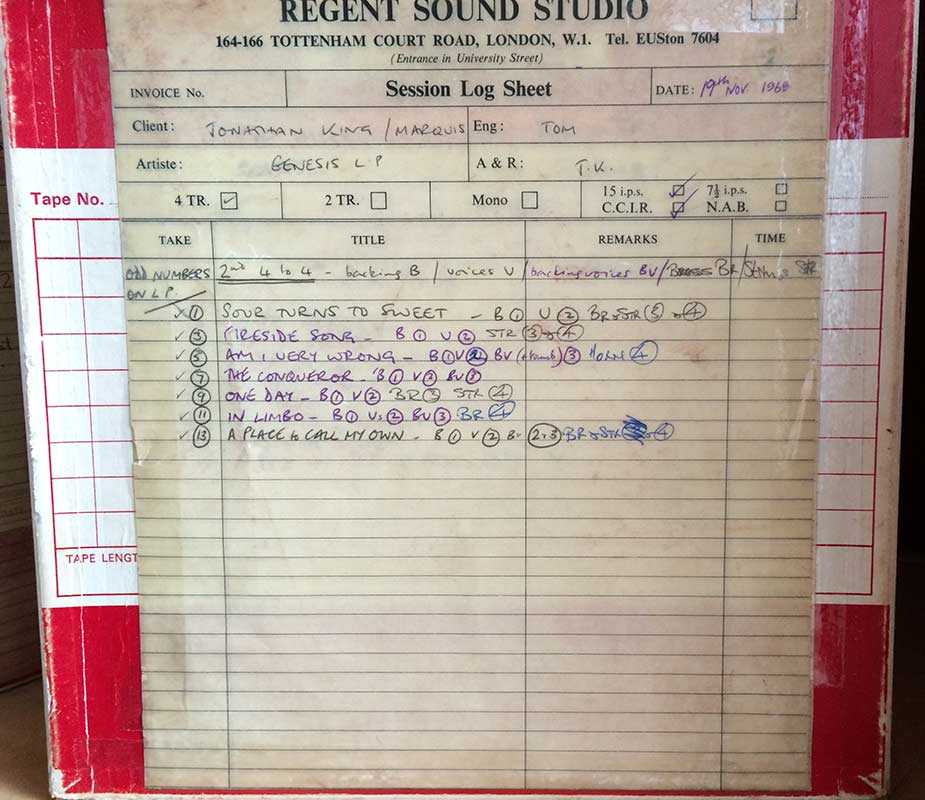 REGENT SOUND STUDIO
164-166 TOTTENHAM COURT ROAD, LONDON, W.1. Tel. EUSton 7604
(Entrance in University Street)
INVOICE No. Session Log Sheet DATE: 19th NOV 1968
Client: JONATHAN KING / MARQUIS Eng: TOM
Artiste: GENESIS L P A & R: J.K.
Tape No. 4 TR. 2 TR. Mono 15 i.p.s. 7½ i.p.s.
C.C.I.R. N.A.B.
TAKE TITLE REMARKS TIME
ODD NUMBERS 2nd 4 to 4 - backing B / voices V / backing voices BV / BRASS BR / STR
ON L P.
① SOUR TURNS TO SWEET - B ① V ② BR & STR ③ & ④
✓ ③ FIRESIDE SONG - B ① V ② STR ③ & ④
✓ ⑤ AM I VERY WRONG - B ① V ② BV (+ tamb) ③ HORN ④
✓ ⑦ THE CONQUEROR - B ① V ② BV ③
✓ ⑨ ONE DAY - B ① V ② BR ③ STR ④
✓ ⑪ IN LIMBO - B ① Vs ② BV ③ BR ④
✓ ⑬ A PLACE to CALL MY OWN - B ① V ② BV 2+3 BR & STR ④
TAPE LENGT